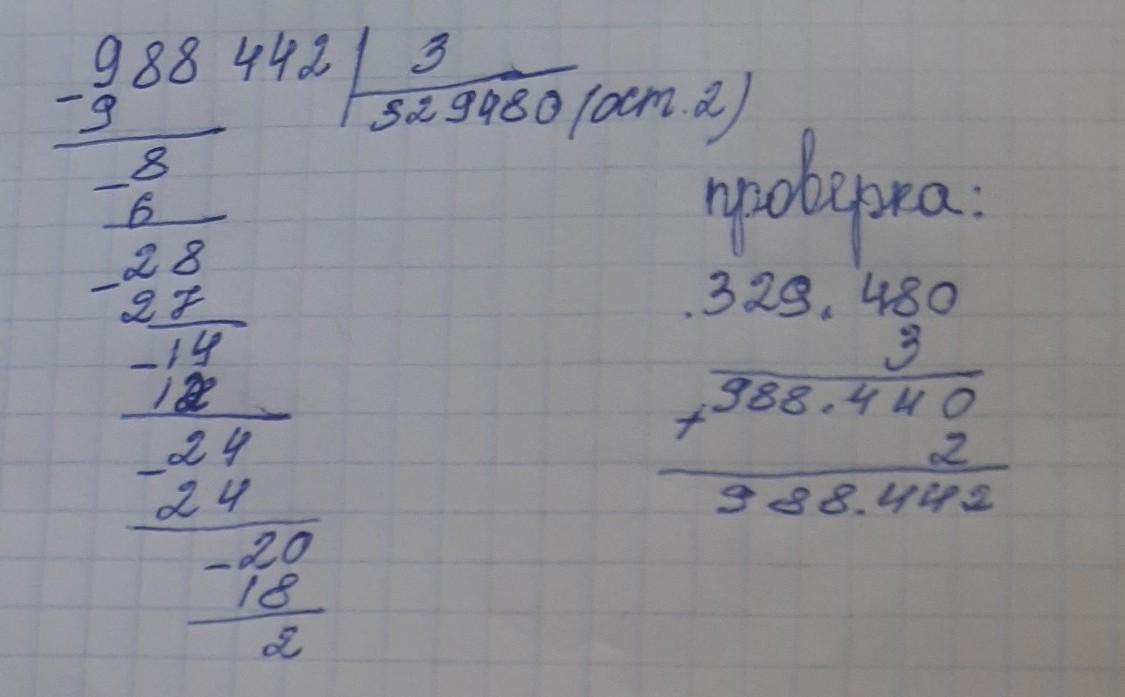 -988 442 | 3
9
329480 (ост. 2)
-8
6
-28
27
-14
12
-24
24
-20
18
2
проверка:
.329.480
3
+988.440
2
988.442